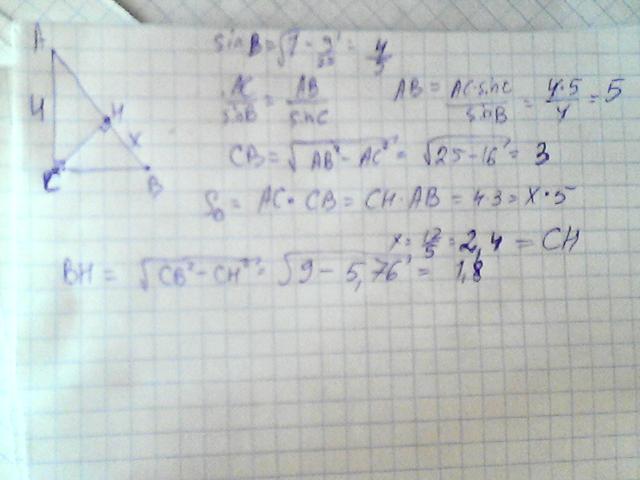 A
4
H
x
C
B
sinB = √1 - 9/25 = 4/5
AC/sinB = AB/sinC
AB = AC·sinC/sinB = 4·5/4 = 5
CB = √AB² - AC² = √25 - 16 = 3
S = AC · CB = CH · AB = 4·3 = x · 5
x = 12/5 = 2,4 = CH
BH = √CB² - CH² = √9 - 5,76 = 1,8